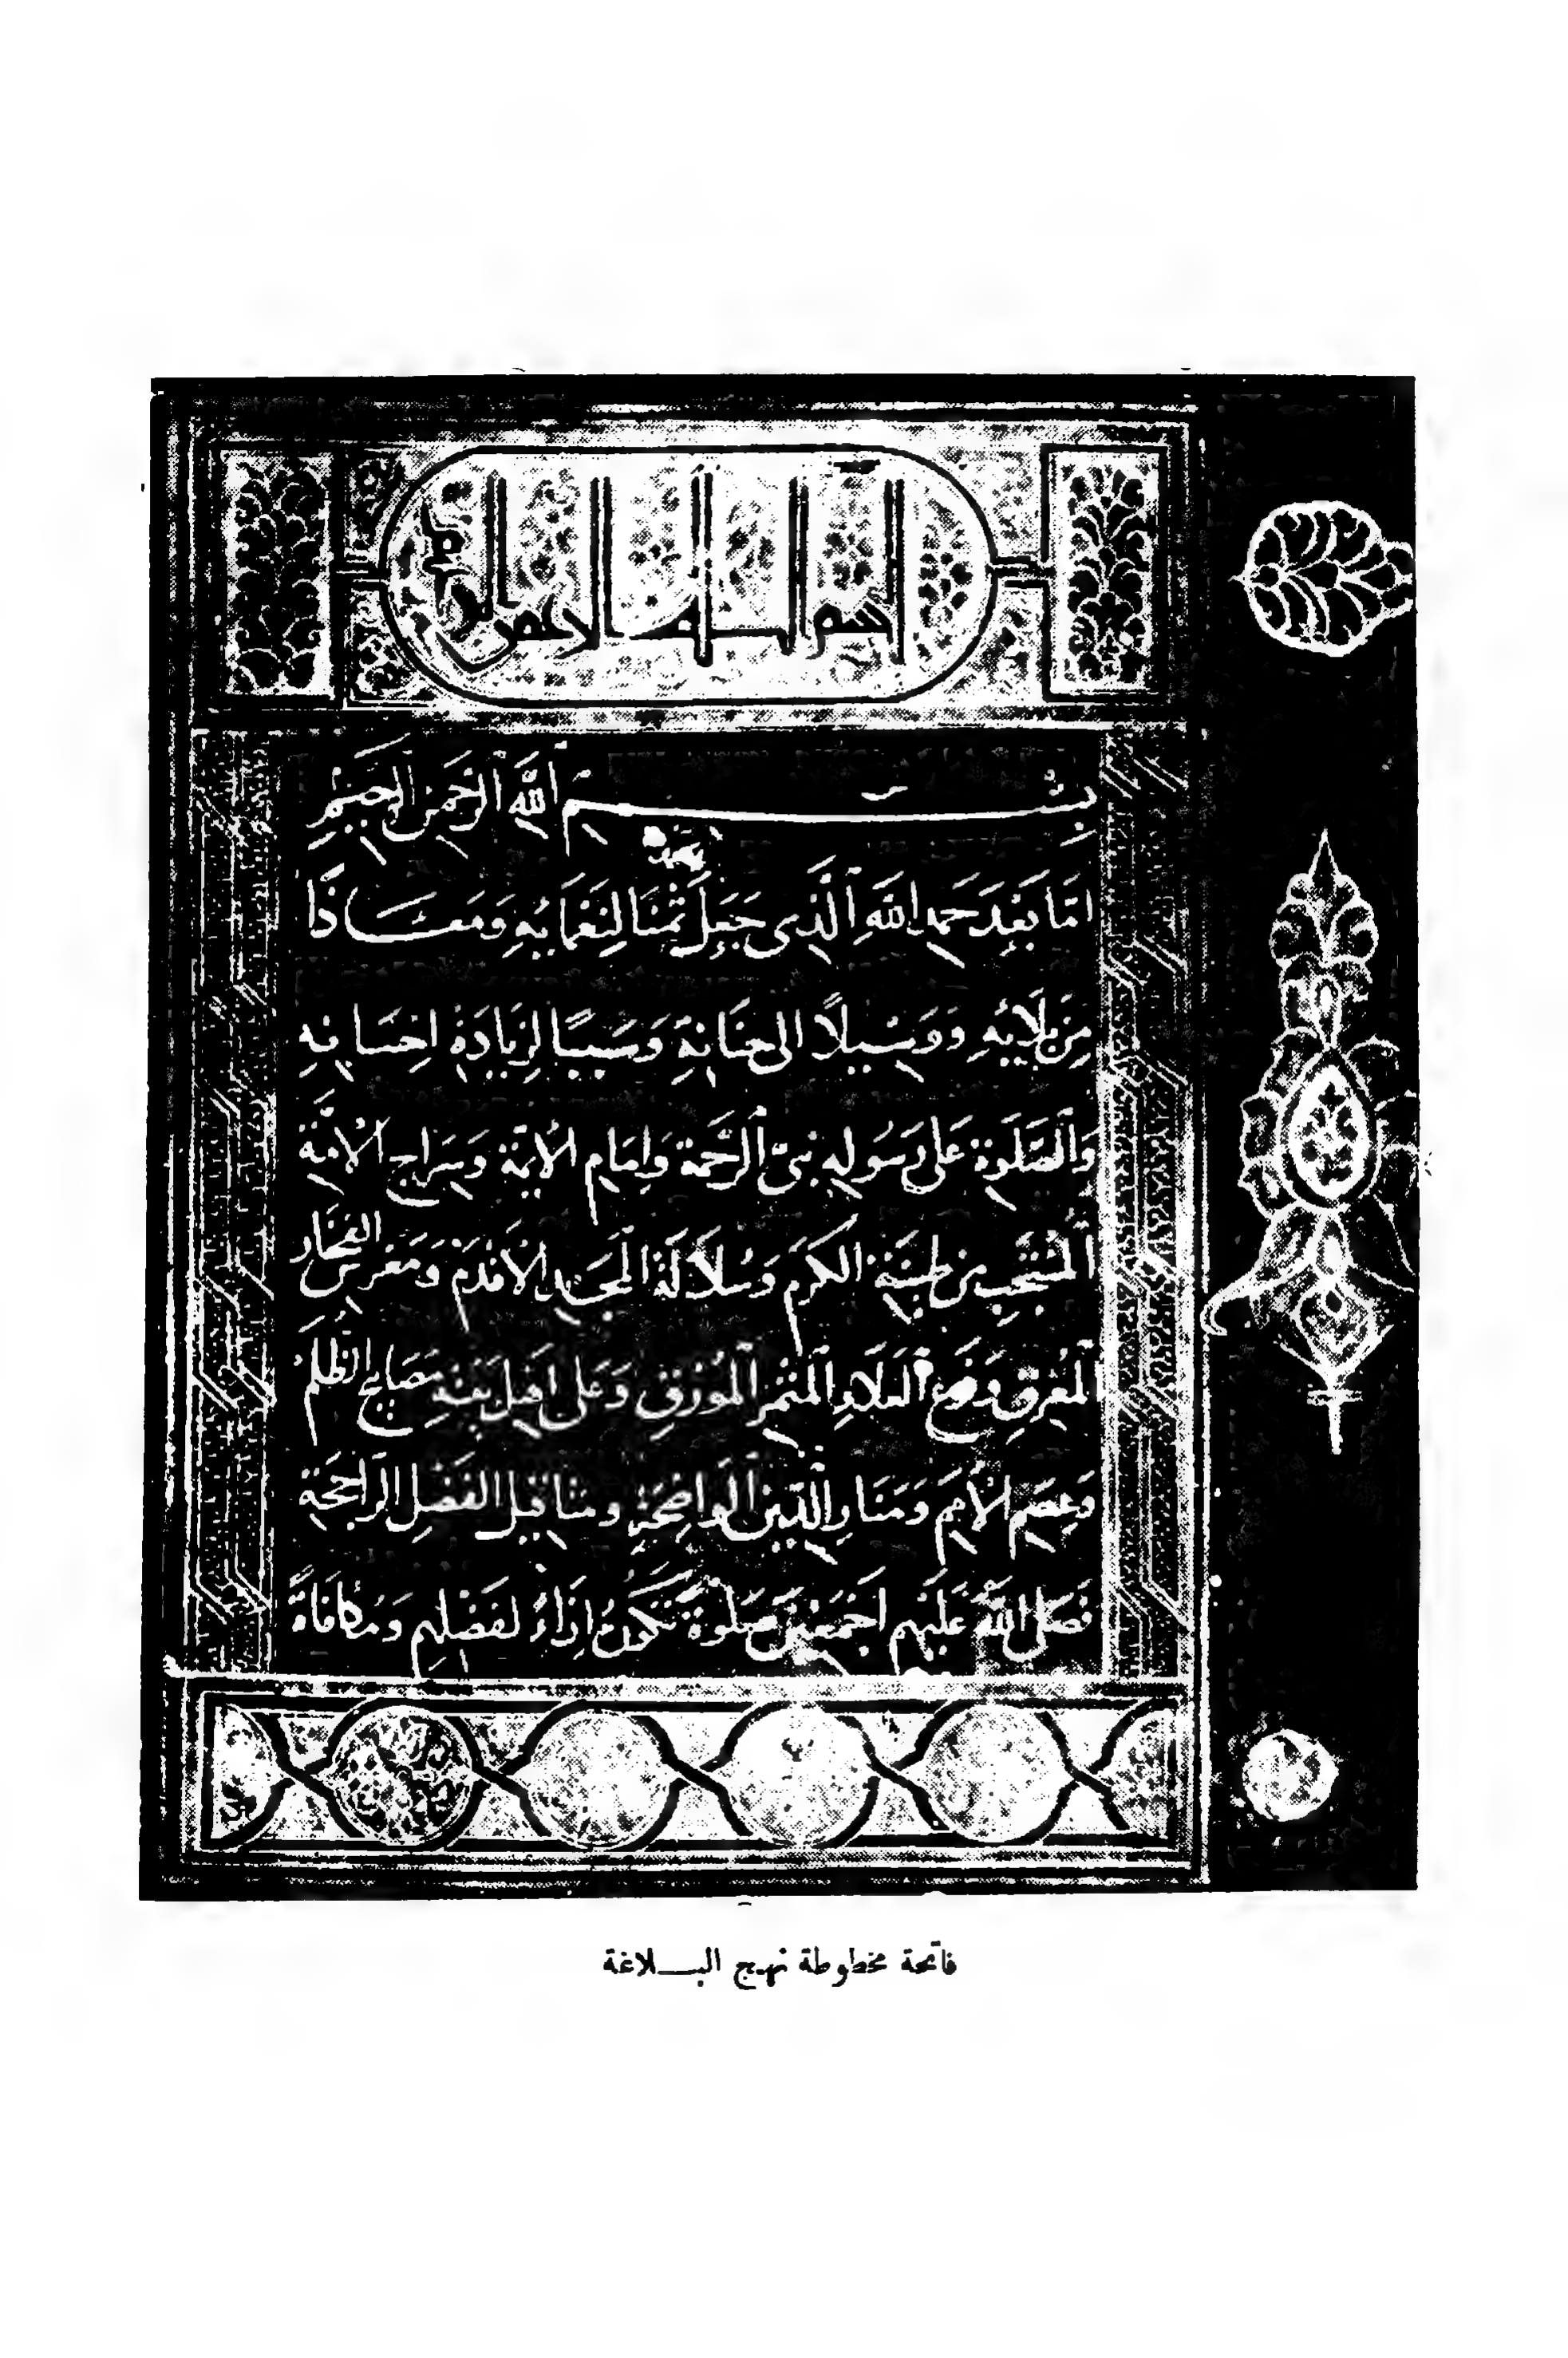 بسم الله الرحمن الرحيم
بِسْمِ اللَّهِ الرَّحْمَنِ الرَّحِيمِ
اَمَّا بَعْدَ حَمْدِ اللَّهِ الَّذِى جَعَلَ الْحَمْدَ ثَمَنًا لِنَعْمَائِهِ وَمَعَاذًا
مِنْ بَلَائِهِ وَوَسِيلًا اِلَى جِنَانِهِ وَسَبَبًا لِزِيَادَةِ اِحْسَانِهِ
وَالصَّلَوةِ عَلَى رَسُولِهِ نَبِىِّ الرَّحْمَةِ وَاِمَامِ الْاَئِمَّةِ وَسِرَاجِ الْاُمَّةِ
الْمُنْتَجَبِ مِنْ طِينَةِ الْكَرَمِ وَسُلَالَةِ الْمَجْدِ الْاَقْدَمِ وَمَغْرِسِ الْفَخَارِ
الْمُعْرِقِ وَفَرْعِ الْعَلَاءِ الْمُثْمِرِ الْمُورِقِ وَعَلَى اَهْلِ بَيْتِهِ مَصَابِيحِ الظُّلَمِ
وَعِصَمِ الْاُمَمِ وَمَنَارِ الدِّينِ الْوَاضِحَةِ وَمَثَاقِيلِ الْفَضْلِ الرَّاجِحَةِ
فَصَلَّى اللَّهُ عَلَيْهِمْ اَجْمَعِينَ صَلَوةً تَكُونُ اِزَاءً لِفَضْلِهِمْ وَمُكَافَاةً
فاتحة مخطوطة نهج البــلاغة